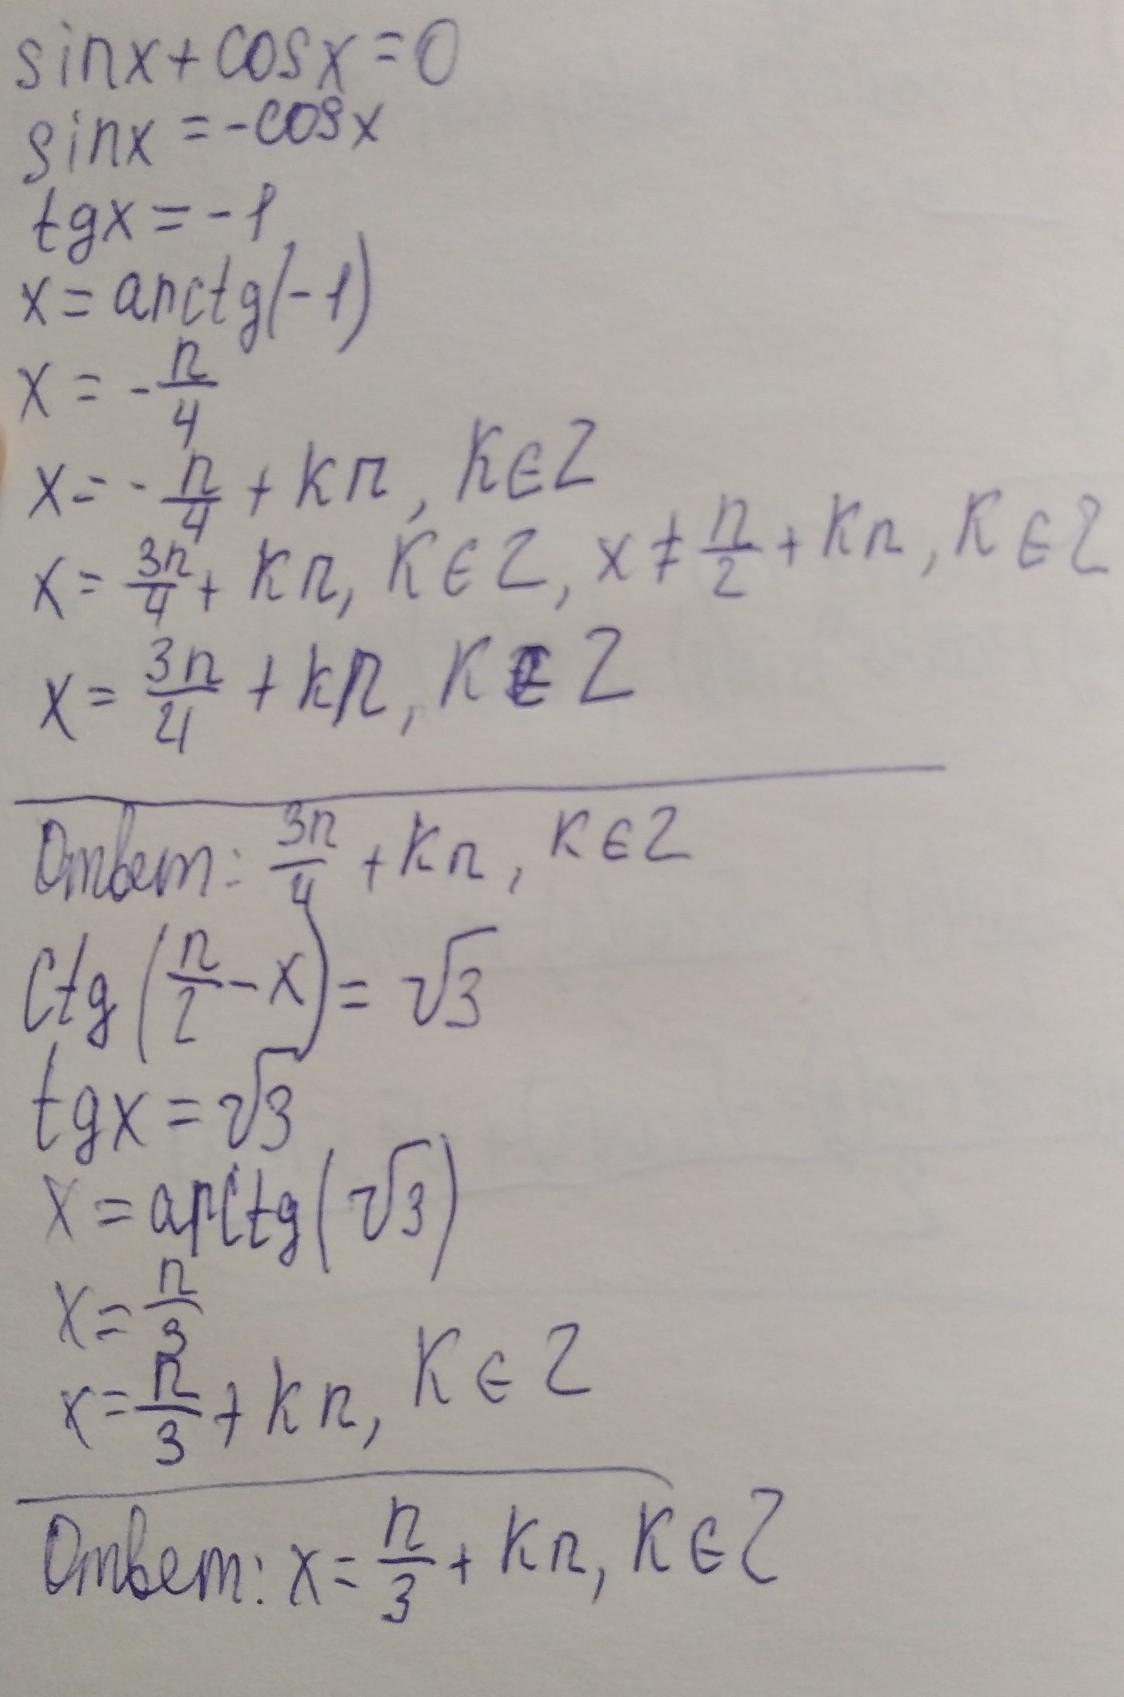 sinx+cosx=0
sinx=-cosx
tgx=-1
x=arctg(-1)
x=-π/4
x=-π/4+kπ, k∈Z
x=3π/4+kπ, k∈Z, x≠π/2+kπ, k∈Z
x=3π/4+kπ, k∈Z
Ответ: 3π/4+kπ, k∈Z
ctg(π/2-x)=√3
tgx=√3
x=arctg(√3)
x=π/3
x=π/3+kπ, k∈Z
Ответ: x=π/3+kπ, k∈Z